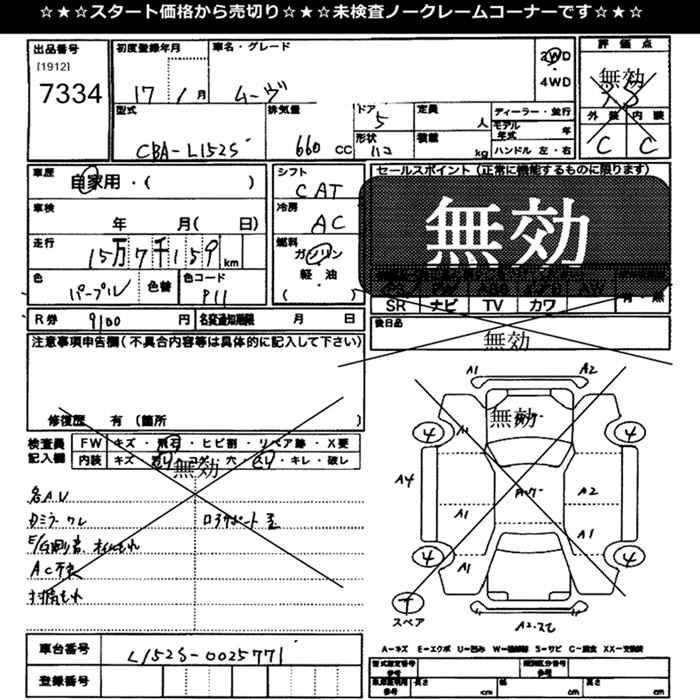 ☆★☆スタート価格から売切り☆★☆未検査ノークレームコーナーです☆★☆
出品番号
[1912]
7334
初度登録年月
17 1月
車名・グレード
ムーヴ
2WD
4WD
評価点
無効
外装 内装
C C
型式
CBA-L152S
排気量
660 CC
ドア
5
形状
ハコ
定員
人
積載
kg
ディーラー・並行
モデル年式 年
ハンドル 左・右
車歴
自家用・( )
車検
年 月( 日)
走行
15万7千159 km
色
パープル
色替
色コード
P11
シフト
CAT
冷房
AC
燃料
ガソリン
軽・油
( )
セールスポイント(正常に機能するものに限ります)
無効
SR ナビ TV カワ
有・無
R券 9100 円
名変通知期限 月 日
後日品
無効
注意事項申告欄(不具合内容等は具体的に記入して下さい)
修復歴 有 (箇所 )
検査員記入欄
FW キズ・飛石・ヒビ割・リペア跡・X要
内装 キズ・コゲ・穴・キレ・破レ
無効
各AU
ロアサポート歪
AC不良
車台番号 L152S-0025771
登録番号
A1 A2
無効
4 A1 4
A4 A1 A2
A1
4 A1 4
スペア
A-キズ E-エクボ U-凹み W-補修跡 S-サビ C-腐食 XX-交換済
型式指定番号 参考
類別区分番号 参考
長さ cm 幅 cm 高さ cm